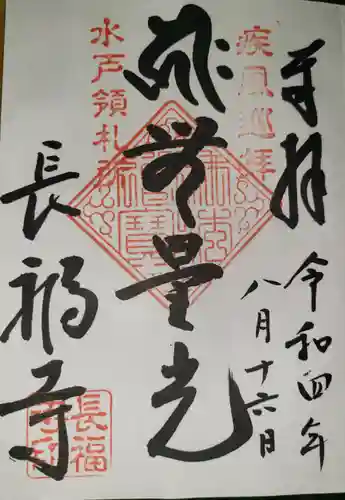 奉拝
令和四年
八月十六日
疾風巡拝
無量光
水戸領札所
長福寺
長福
寺印